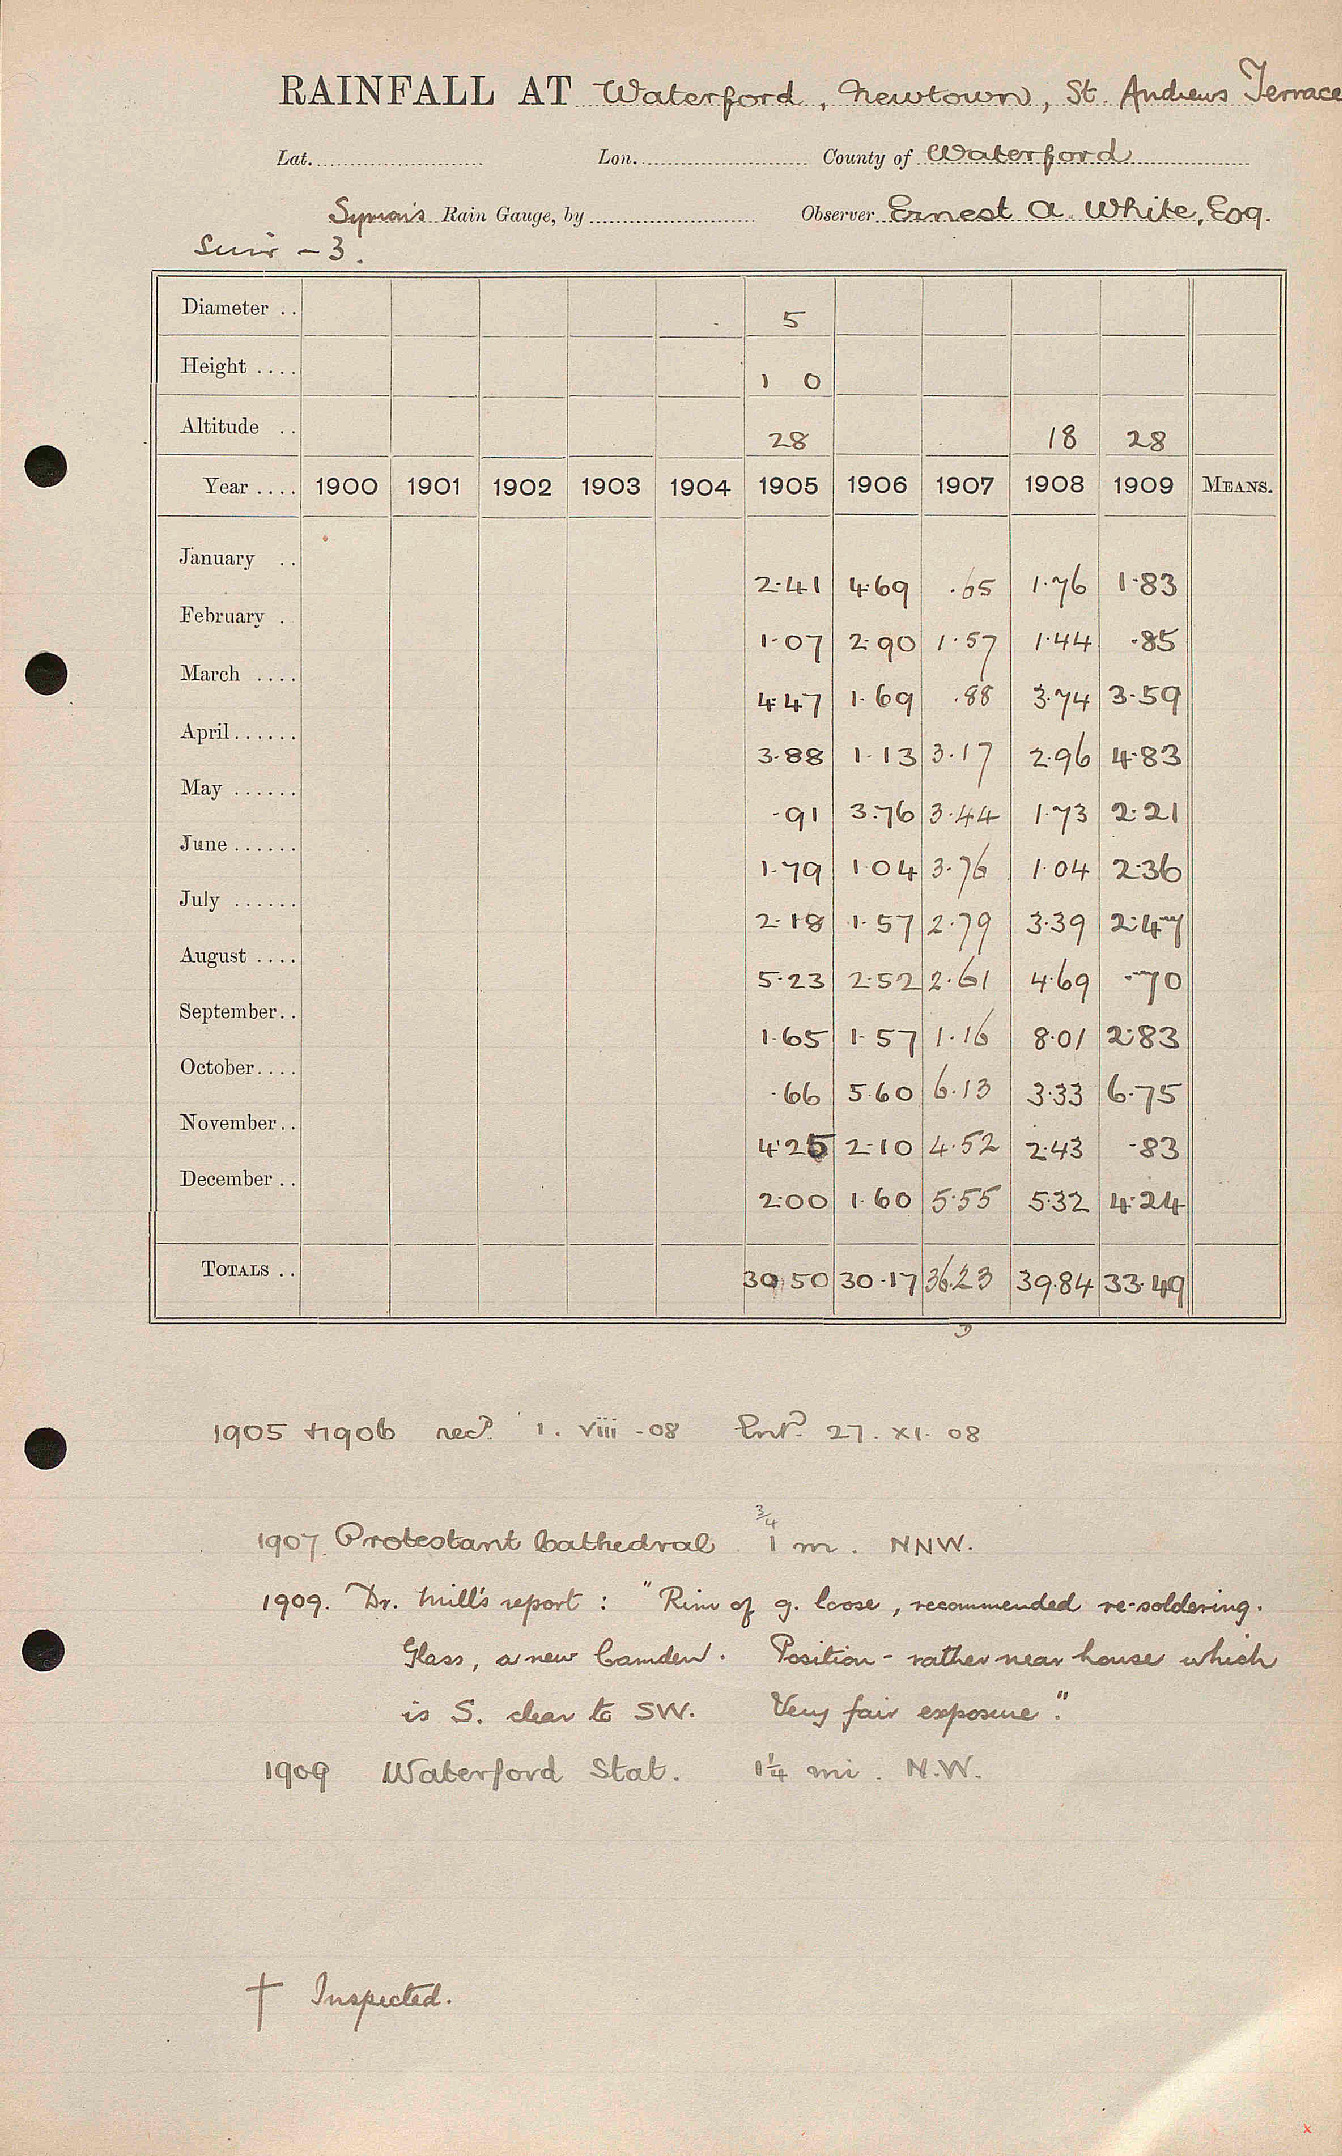 RAINFALL AT Waterford, Newtown, St. Andrews Terrace
Lat. Lon. County of Waterford
Symons Rain Gauge, by Observer Ernest A. White, Esq.
Suir – 3.
Diameter .. 5
Height .... 1 0
Altitude .. 28 18 28
Year .... 1900 1901 1902 1903 1904 1905 1906 1907 1908 1909 MEANS.
January .. 2.41 4.69 .65 1.76 1.83
February . 1.07 2.90 1.57 1.44 .85
March .... 4.47 1.69 .88 3.74 3.59
April ...... 3.88 1.13 3.17 2.96 4.83
May ...... .91 3.76 3.44 1.73 2.21
June ...... 1.79 1.04 3.76 1.04 2.36
July ...... 2.18 1.57 2.79 3.39 2.47
August .... 5.23 2.52 2.61 4.69 .70
September.. 1.65 1.57 1.16 8.01 2.83
October.... .66 5.60 6.13 3.33 6.75
November.. 4.25 2.10 4.52 2.43 .83
December .. 2.00 1.60 5.55 5.32 4.24
TOTALS .. 30.50 30.17 36.23 39.84 33.49
1905 + 1906 recd. 1. viii - 08 Entd. 27. xi. 08
1907 Protestant Cathedral 3/4 1 m. NNW.
1909. Dr. Mill's report : "Rim of g. loose, recommended re-soldering.
Glass, a new Camden. Position - rather near house which
is S. clear to SW. Very fair exposure."
1909 Waterford Stat. 1¼ mi. N.W.
† Inspected.